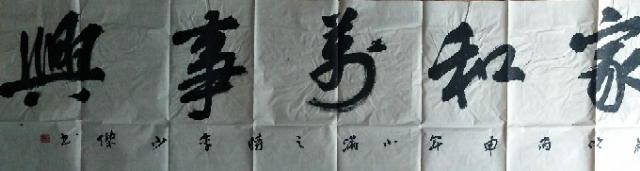 家和萬事興
丙申年小滿之時李少傑書